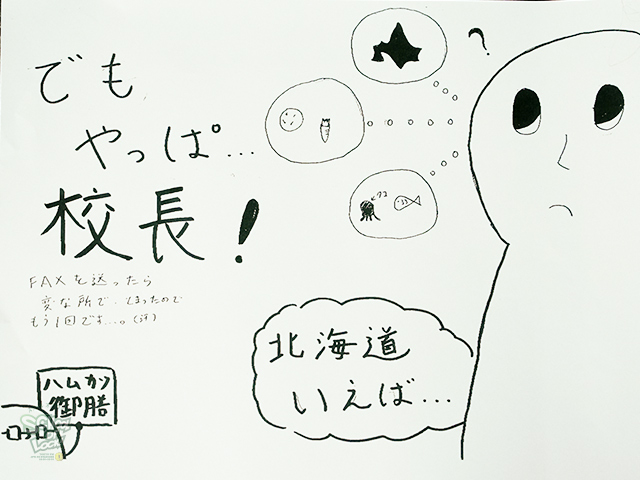 でも
やっぱ…
校長!
FAXを送ったら
変な所で
もう1回です…。(汗)
?
北海道
いえば…
ハムカツ
御膳